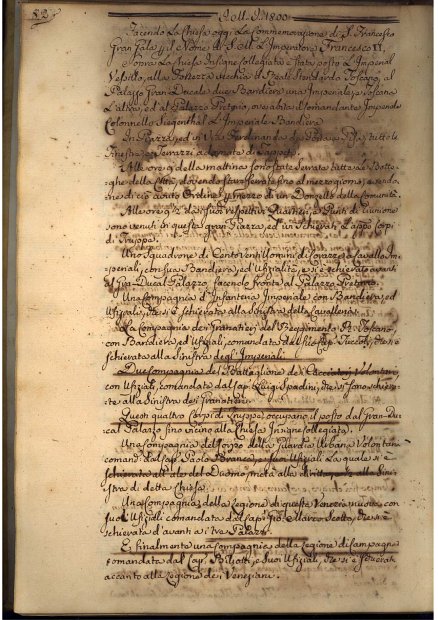 82
A.M.D. 1800
Facendo La Chiesa oggi La Commemorazione di S. Francesco
Gran Gala pel Nome di S.M. L'Imperatore Francesco II.
Sopra La Chiesa Insigne Collegiata è stato posto L'Imperial
Vessillo, alla Fortezza Vecchia il Reale Stendardo Toscano, al
Palazzo Gran Ducale due Bandiere una Imperiale, e Toscana
L'altra, ed al Palazzo Pretorio, ove abita il Comandante Imperiale
Colonnello Siegenthal L'Imperiale Bandiera
In Piazza, ed in Via Ferdinanda da Porta a Pisa, tutte le
Finestre, e Terrazzi adornate di Tappeti
Alle ore 9 della mattina sono state Serrate tutte le Botte-
ghe della Città, dovendo stare serrate fino al mezzogiorno, avendo-
ne di ciò avuto Ordine per mezzo di un Donzello della Comunità
Alle ore 9 1/2 dai suoi respettivi Quartieri, e Punti di riunione
sono venuti in questa gran Piazza, ed ivi Schierati Lappo Corpi
di Truppa.
Uno Squadrone di Cento venti Uomini di Corazze a Cavallo Im-
periali, con sua Bandiera, ed Ufizialità, e si è schierato avanti
il Gran-Ducal Palazzo, facendo fronte al Palazzo Pretorio.
Una Compagnia d'Infanteria Imperiale con Bandiera, ed
Ufiziali, che si è schierata alla sinistra della Cavalleria.
La Compagnia dei Granatieri del Reggimento R. Toscano,
con Bandiera ed Ufiziali, comandata dal
schierata alla Sinistra degl' Imperiali.
Due Compagnie del Battaglione dei Cacciatori Volontari
con Ufiziali, comandate dal Cap. Luigi Spadini, che si sono schiera-
te alla Sinistra dei Granatieri.
Questi quattro Corpi di Truppe, occupano il posto dal Gran-Du-
cal Palazzo fino vicino alla Chiesa Insigne Collegiata.
Una Compagnia del Corpo della Guardia Urbana Volontaria
comand. dal Cap. Paolo Branca, e suoi Ufiziali La quale si è
schierata all'alto del Duomo, metà alla diritta, e metà alla Sini-
stra di detta Chiesa.
Una Compagnia della Legione di questa Venezia nuova, con
suoi Ufiziali comandata dal Cap. Gio. Marco Scotto, che si è
schierata d'avanti a i tre Palazzi.
E finalmente una Compagnia della Legione di Campagna
comandata dal Cap. Biliotti, e suoi Ufiziali, che si è schierata
accanto alla Legione dei Veneziani.